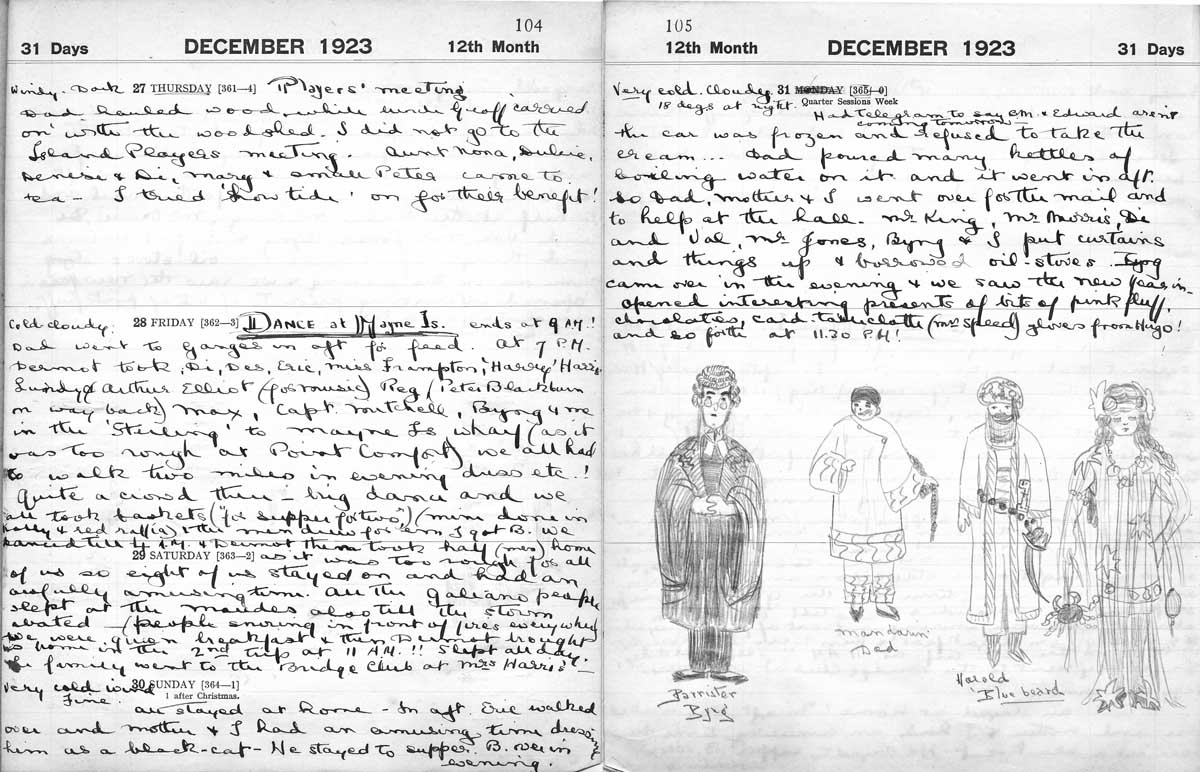 104
31 Days DECEMBER 1923 12th Month
Windy. Dark 27 THURSDAY [361—4] Players' meeting
Dad hauled wood, while Geoff carried
on with the woodshed. I did not go to the
Island Players meeting. Aunt Nona, Dulcie,
Denise & Di, Mary & small Peter came to
tea – I tried 'Show tide' on for their benefit!
Cold cloudy. 28 FRIDAY [362—3] DANCE at Mayne Is. ends at 9 A.M.!
Dad went to Ganges in aft for feed. At 7 P.M.
Dermot took, Di, Des, Eric, Miss Frampton, 'Harry' Harris
Arthur Elliot (for music) Peg (Peter Blackburn
on way back) Max, Capt. Mitchell, Byng & me
in the 'Sterling' to Mayne Is wharf (as it
was too rough at Point Comfort) we all had
to walk two miles in evening dress etc.!
Quite a crowd there – big dance and we
all took baskets ("for supper for two") (mine done in
holly & red raffia) & the men drew for 'em I got B. We
danced till 4 A.M. & Dermot then took half (men) home
29 SATURDAY [363—2] as it was too rough for all
of us so eight of us stayed on and had an
awfully amusing time. All the Galiano people
slept at the Maudes also till the storm
abated – (people snoring in front of fires everywhere
We were given breakfast & then Dermot brought
us home in the 2nd trip at 11 A.M.!! Slept all day.
The family went to the Bridge Club at Mrs Harris'
Very cold wind 30 SUNDAY [364—1]
Fine. 1 after Christmas.
All stayed at home – In aft. Eric walked
over and mother & I had an amusing time dressing
him as a black-cat – He stayed to supper. B. over in
evening.
105
12th Month DECEMBER 1923 31 Days
Very cold. Cloudy. 31 MONDAY [365—0]
18 degs at night. Quarter Sessions Week
Had telegram to say M. & Edward aren't
coming tomorrow
The car was frozen and refused to take the
cream... Dad poured many kettles of
boiling water on it and it went in aft.
so Dad, mother & I went over for the mail and
to help at the hall. Mr King, Mr Morris, Di
and Val, Mr Jones, Byng & I put curtains
and things up & borrowed oil-stoves. Byng
came over in the evening & we saw the New Year in –
opened interesting presents of bits of pink fluff,
chocolates, card tablecloth (Mrs Speed) gloves from Hugo!
and so forth at 11.30 P.M!
Barrister
Byng
'mandarin'
Dad
Harold
'Bluebeard